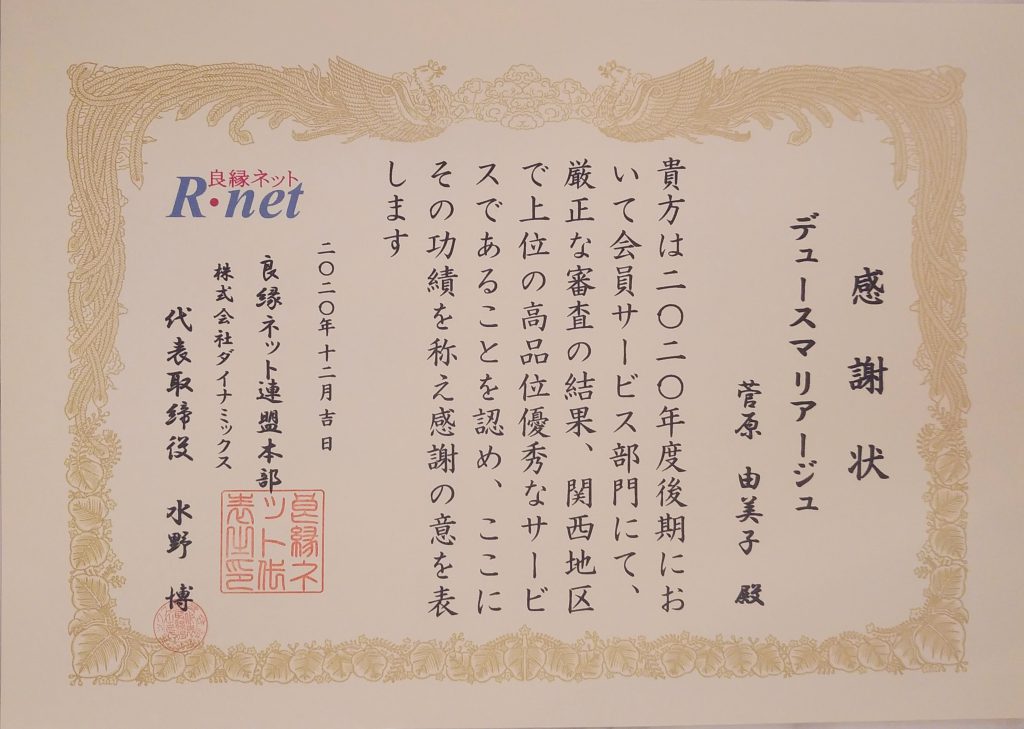 感謝状
デュースマリアージュ
菅原 由美子 殿
貴方は二〇二〇年度後期にお
いて会員サービス部門にて、
厳正な審査の結果、関西地区
で上位の高品位優秀なサービ
スであることを認め、ここに
その功績を称え感謝の意を表
します
二〇二〇年十二月吉日
良縁ネット連盟本部
株式会社ダイナミックス
代表取締役 水野 博
良縁ネット
R・net
良縁ネ
ット代
表之印